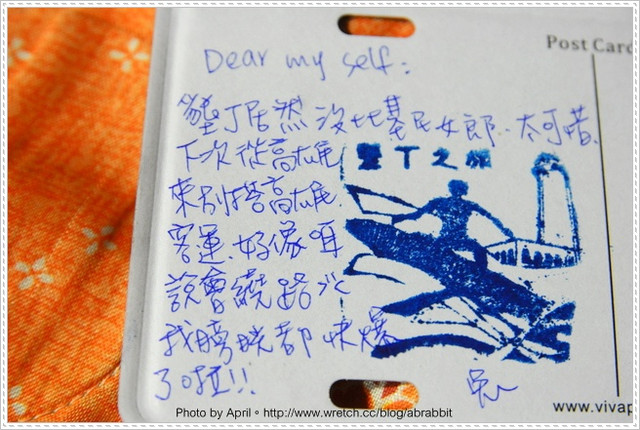 Post Card
Dear my self:
墾丁居然沒比基尼女郎..太可惜.
下次從高雄
來別搭高雄
客運.好像
說會繞路
我膀胱都快爆
了啦!!
墾丁之旅
www.vivap
Photo by April。http://www.wretch.cc/blog/abrabbit